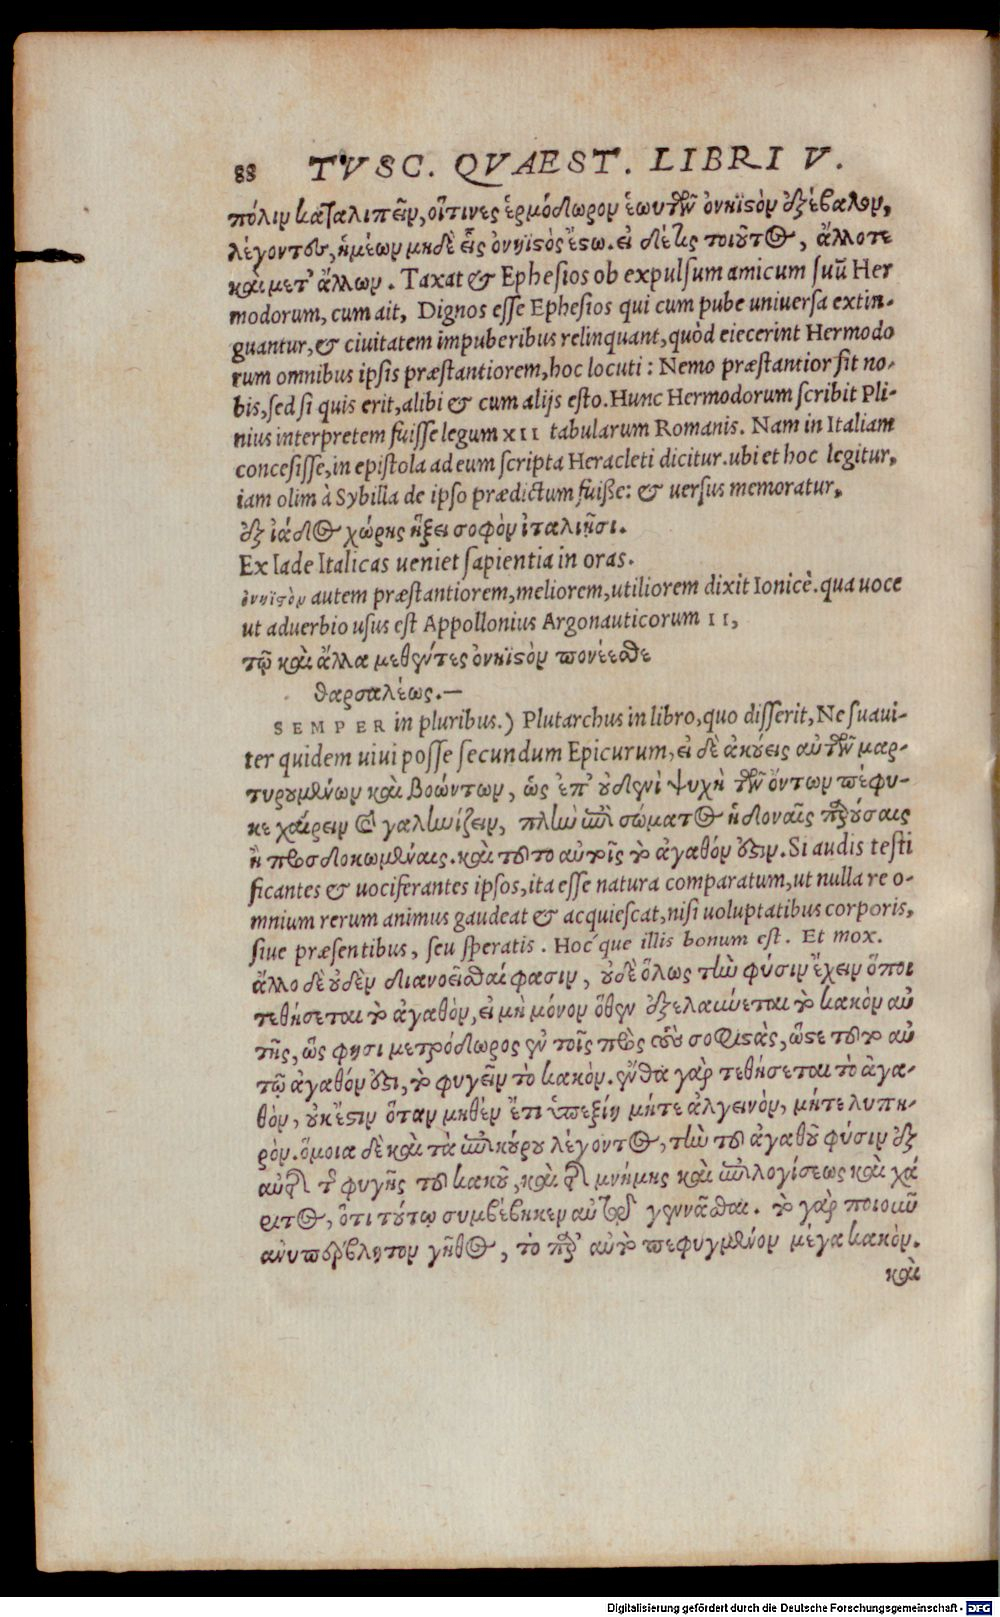 88 TVSC. QVAEST. LIBRI V.
πόλιν καταλιπεῖν, οἵτινες ἑρμόδωρον ἑωυτῶν ὀνήϊστον ἐξέβαλον,
λέγοντες, ἡμέων μηδὲ εἷς ὀνήϊστος ἔστω. εἰ δέ τις τοιοῦτος, ἄλλοτε
καὶ μετ' ἄλλων. Taxat & Ephesios ob expulsum amicum suū Her
modorum, cum ait, Dignos esse Ephesios qui cum pube uniuersa extin-
guantur, & ciuitatem impuberibus relinquant, quòd eiecerint Hermodo
rum omnibus ipsis præstantiorem, hoc locuti: Nemo præstantior sit no-
bis, sed si quis erit, alibi & cum alijs esto. Hunc Hermodorum scribit Pli-
nius interpretem fuisse legum XII tabularum Romanis. Nam in Italiam
concesisse, in epistola ad eum scripta Heracleti dicitur. ubi et hoc legitur,
iam olim à Sybilla de ipso prædictum fuisse: & uersus memoratur,
ἐξ ἰάδος χώρης ἥξει σοφὸν ἰταλιῇσι.
Ex Iade Italicas ueniet sapientia in oras.
ὀνήϊστον autem præstantiorem, meliorem, utiliorem dixit Ionicè. qua uoce
ut aduerbio usus est Appollonius Argonauticorum II,
τῷ καὶ ἄλλα μεθέντες ὀνήϊστον πονέεσθε
θαρσαλέως.—
SEMPER in pluribus.) Plutarchus in libro, quo disserit, Ne suaui-
ter quidem uiui posse secundum Epicurum, εἰ δὲ ἀκούεις αὐτῶν μαρ-
τυρουμένων καὶ βοώντων, ὡς ἐπ' οὐδενὶ ψυχὴ τῶν ὄντων πέφυ-
κε χαίρειν καὶ γαληνίζειν, πλὴν ἐπὶ σώματος ἡδοναῖς παρούσαις
ἢ προσδοκωμέναις. καὶ τοῦτο αὐτοῖς τὸ ἀγαθόν ἐστιν. Si audis testi
ficantes & uociferantes ipsos, ita esse natura comparatum, ut nulla re o-
mnium rerum animus gaudeat & acquiescat, nisi uoluptatibus corporis,
siue præsentibus, seu speratis. Hoc'que illis bonum est. Et mox.
ἄλλο δὲ οὐδὲν διανοεῖσθαί φασιν, οὐδὲ ὅλως τὴν φύσιν ἔχειν ὅποι
τεθήσεται τὸ ἀγαθὸν, εἰ μὴ μόνον ὅθεν ἐξελαύνεται τὸ κακὸν αὐ
τῆς, ὥς φησι μετρόδωρος ἐν τοῖς πρὸς τοὺς σοφιστὰς, ὥστε τοῦτο αὐ
τῷ ἀγαθόν ἐστι, τὸ φυγεῖν τὸ κακόν. ἔνθα γὰρ τεθήσεται τὸ ἀγα-
θὸν, οὐκ ἔστιν ὅταν μηθὲν ἔτι ὑπεξίῃ μήτε ἀλγεινὸν, μήτε λυπη-
ρόν. ὅμοια δὲ καὶ τὰ ἐπικούρου λέγοντος, τὴν τοῦ ἀγαθοῦ φύσιν ἐξ
αὐτῆς τῆς φυγῆς τοῦ κακοῦ, καὶ τῆς μνήμης καὶ ἐπιλογίσεως καὶ χά
ριτος, ὅτι τούτῳ συμβέβηκεν αὐτοῦ γεννᾶσθαι. τὸ γὰρ ποιοιῦν
ἀνυπέρβλητον γῆθος, τὸ παρ' αὐτὸ πεφυγμένον μέγα κακὸν.
καὶ
Digitalisierung gefördert durch die Deutsche Forschungsgemeinschaft - DFG